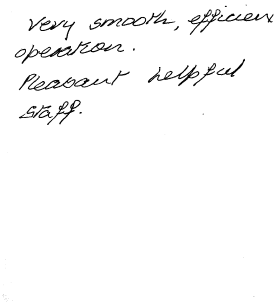 Very smooth, efficient
operation.
Pleasant helpful
staff.